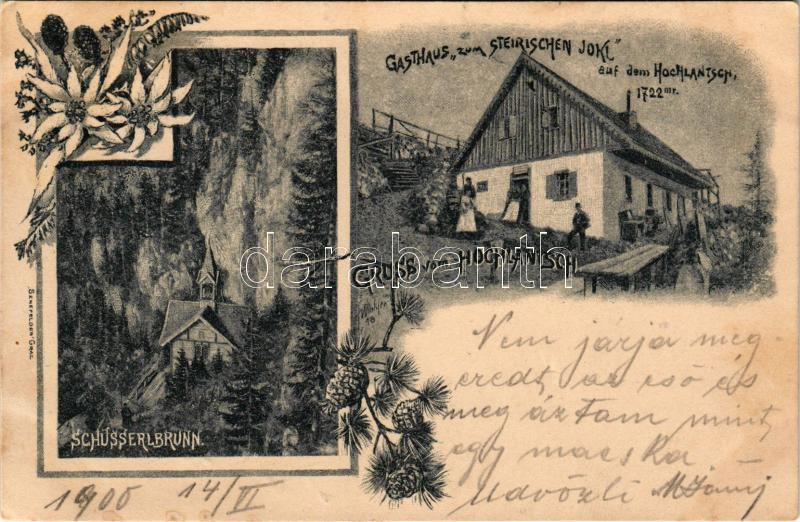 GASTHAUS „ZUM STEIRISCHEN JOKL"
auf dem HOCHLANTSCH,
1722 mr.
GRUSS vom HOCHLANTSCH
darabanth.com
SCHÜSSERLBRUNN
SENEFELDER·GRAZ
Nem járja meg
eredt az eső és
meg áztam mint
egy macska
Üdvözli
1900 14/VI